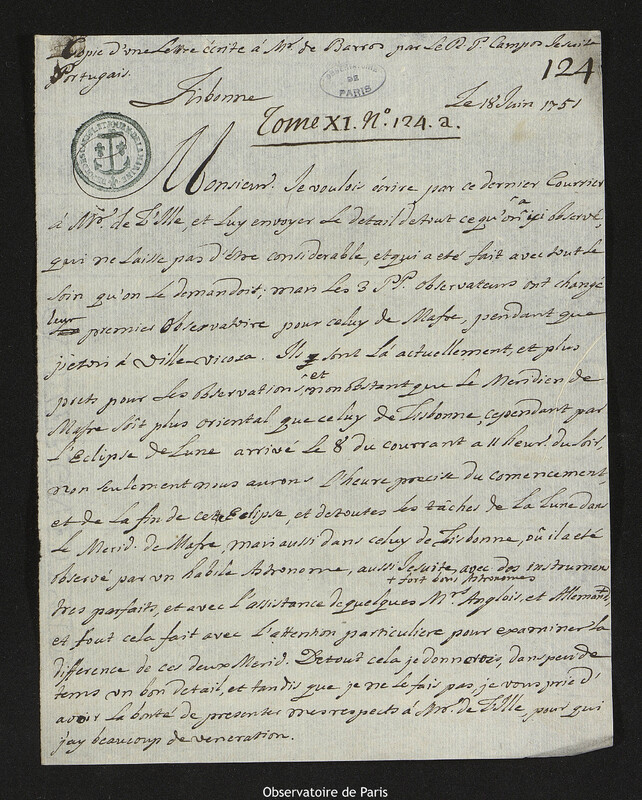 Copie d'une Lettre écrite à Mr. de Barros par Le R. P. Campos Jesuite
Portugais.
124
OBSERVATOIRE
DE
PARIS
Lisbonne
Le 18 Juin 1751
Tome XI. No. 124. a.
Monsieur. Je voulois écrire par ce dernier Courrier
à Mr. de L'Isle, et luy envoyer le detail de tout ce qu'on a ici observé,
qui ne laisse pas d'être considerable, et qui a eté fait avec tout le
soin qu'on le demandoit; mais les 3 PP. observateurs ont changé
leur premier Observatoire pour celuy de Mafre, pendant que
j'etois à Ville vicosa. Ils y sont là actuellement, et plus
prets pour les observations, et nonobstant que le Meridien de
Mafre soit plus oriental que celuy de Lisbonne, cependant par
l'Eclipse de Lune arrivé le 8 du courrant a 11 heur. du soir,
non seulement nous aurons l'heure precise du comencement,
et de la fin de cette Eclipse, et de toutes les tâches de la Lune dans
le Merid. de Mafre, mais aussi dans celuy de Lisbonne, où il a eté
observé par un habile Astronome, aussi Jesuite, avec des instrumen
+ fort bons Astronomes
tres parfaits, et avec l'assistance de quelques Mrs. Anglois, et Allemands+,
et tout cela fait avec l'attention particuliere pour examiner la
difference de ces deux Merid. De tout cela je donnerois, dans peu de
tems un bon detail, et tandis que je ne le fais pas, je vous prie d'
avoir la bonté de presenter mes respects à Mr. de L'Isle pour qui
j'ay beaucoup de veneration.
Observatoire de Paris